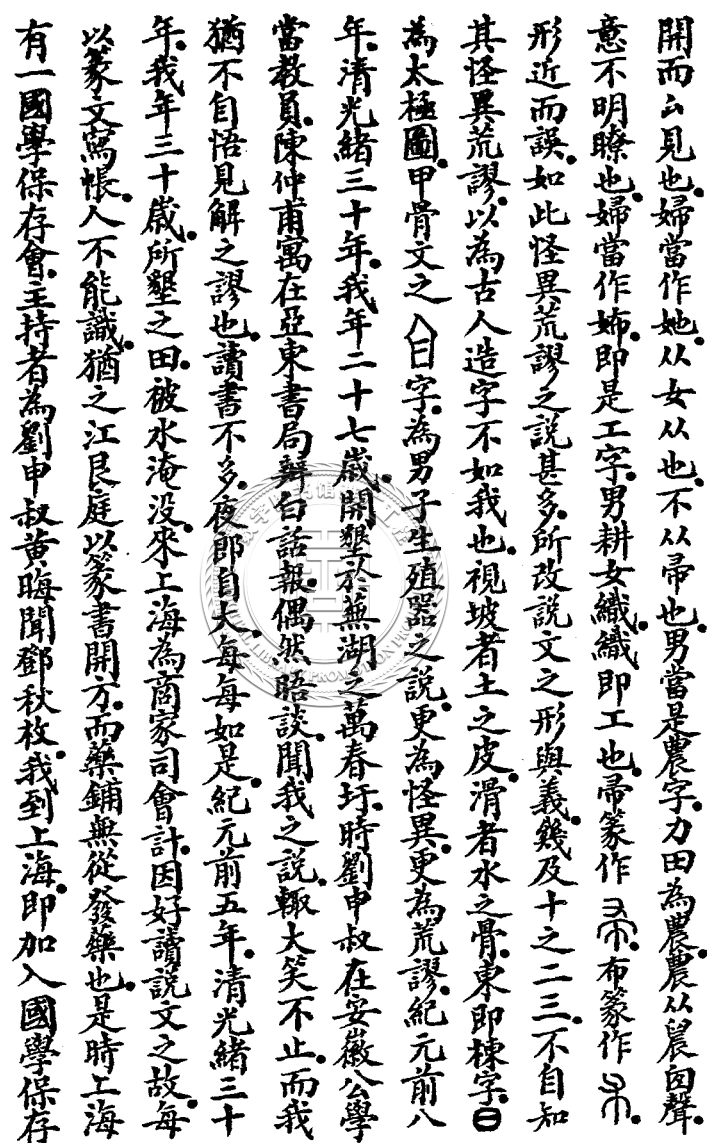 開而𠔁見也婦當作她从女从也不从帚也男當是農字力田為農農从䢅囟聲
意不明瞭也婦當作姉即是工字男耕女織織即工也帚篆作布篆作
形近而誤如此怪異荒謬之説甚多所改説文之形與義幾及十之二三不自知
其怪異荒謬以為古人造字不如我也視坡者土之皮滑者水之骨東即棟字日
為太極圖甲骨文之字為男子生殖器之説更為怪異更為荒謬紀元前八
年清光緒三十年我年二十七歲開墾於蕪湖之萬春圩時劉申叔在安徽公學
當教員陳仲甫寓在亞東書局辦白話報偶然晤談聞我之説輒大笑不止而我
猶不自悟見解之謬也讀書不多夜郎自大每每如是紀元前五年清光緒三十
年我年三十歲所墾之田被水淹没來上海為商家司會計因好讀説文之故每
以篆文寫帳人不能識猶之江艮庭以篆書開方而藥鋪無從發藥也是時上海
有一國學保存會主持者為劉申叔黄晦聞鄧秋枚我到上海即加入國學保存